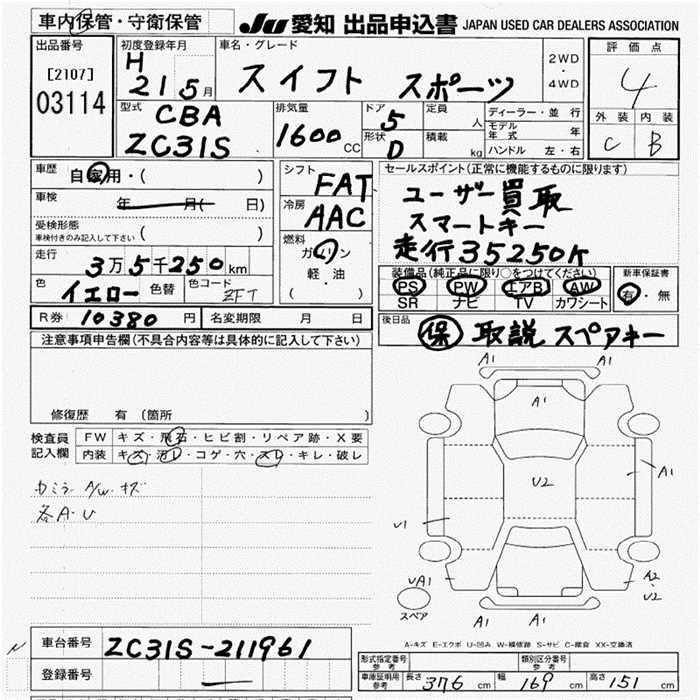 車内保管・守衛保管
JU 愛知 出品申込書 JAPAN USED CAR DEALERS ASSOCIATION
出品番号
[2107]
03114
初度登録年月
H
21 5月
車名・グレード
スイフト スポーツ
2WD
・
4WD
評価点
4
外装 内装
C B
型式
CBA
ZC31S
排気量
1600 CC
ドア 5
形状 D
定員 人
積載 kg
ディーラー・並行
モデル年式 年
ハンドル 左・右
車歴
自家用・( )
車検
年 月( 日)
受検形態
車検付きのみ記入して下さい ( )
走行
3万5千250km
色
イエロー 色替 色コード ZFT
R券 10380 円 名変期限 月 日
シフト
FAT
冷房
AAC
燃料
ガソリン
軽・油
( )
セールスポイント(正常に機能するものに限ります)
ユーザー買取
スマートキー
走行35250K
装備品(純正品に限り○をつけてください)
PS PW エアB AW
SR ナビ TV カワシート
新車保証書
有・無
後日品
保 取説 スペアキー
注意事項申告欄(不具合内容等は具体的に記入して下さい)
修復歴 有 (箇所 )
検査員
記入欄
FW キズ・飛石・ヒビ割・リペア跡・X要
内装 キズ・汚レ・コゲ・穴・スレ・キレ・破レ
カミラー A/W キズ
各A・U
A1 A1
A1
U2
A1
U1
UA1
A2
U2
A1 A1
スペア
A-キズ E-エクボ U-凹み W-補修跡 S-サビ C-腐食 XX-交換済
車台番号 ZC31S-211961
登録番号 —
形式指定番号
参考
類別区分番号
参考
車庫証明用
参考
長さ 376 cm 幅 169 cm 高さ 151 cm